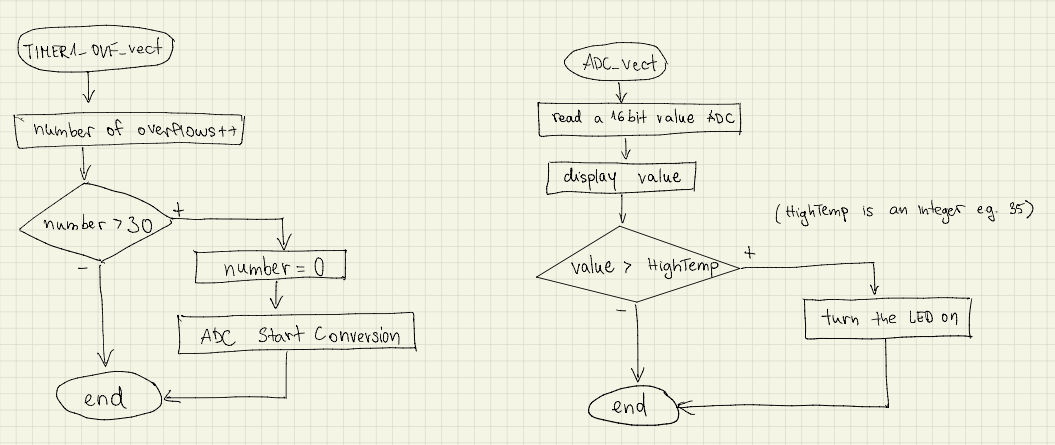 TIMER1_OVF_vect
number of overflows++
number > 30
+
-
number = 0
ADC Start Conversion
end
ADC_vect
read a 16bit value ADC
display value
(HighTemp is an integer eg. 35)
value > HighTemp
+
-
turn the LED on
end